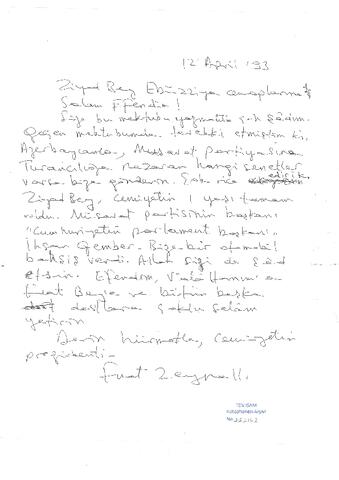 12 April '93
Ziyad Bey Ebüzziya cenaplarına
Salam Efendim!
Size bu mektubu yazmakta çok şadım.
Geçen mektubumda terekki etmiştim ki,
Azerbaycanla, Musavat partiyasına
Turancılığa nazaran hangi senetler
varsa bize gönderin. Çok rica edicik.
Ziyad Bey, cemiyetin 1 yaşı tamam
oldu. Müsavat partisinin başkanı
"Cumhuriyetin parlament başkanı"
İhsan Gember. Bize bir otomobil
bahşiş verdi. Allah sizi de şad
etsin. Efendim, Hanım'a
Fırat Beye ve bütün başka
dostlara çoklu selam
yetirin.
Derin hürmetle, cemiyetin
prezidenti -
Fuat Zeynallı.
TDV İSAM
Kütüphanesi Arşivi
No